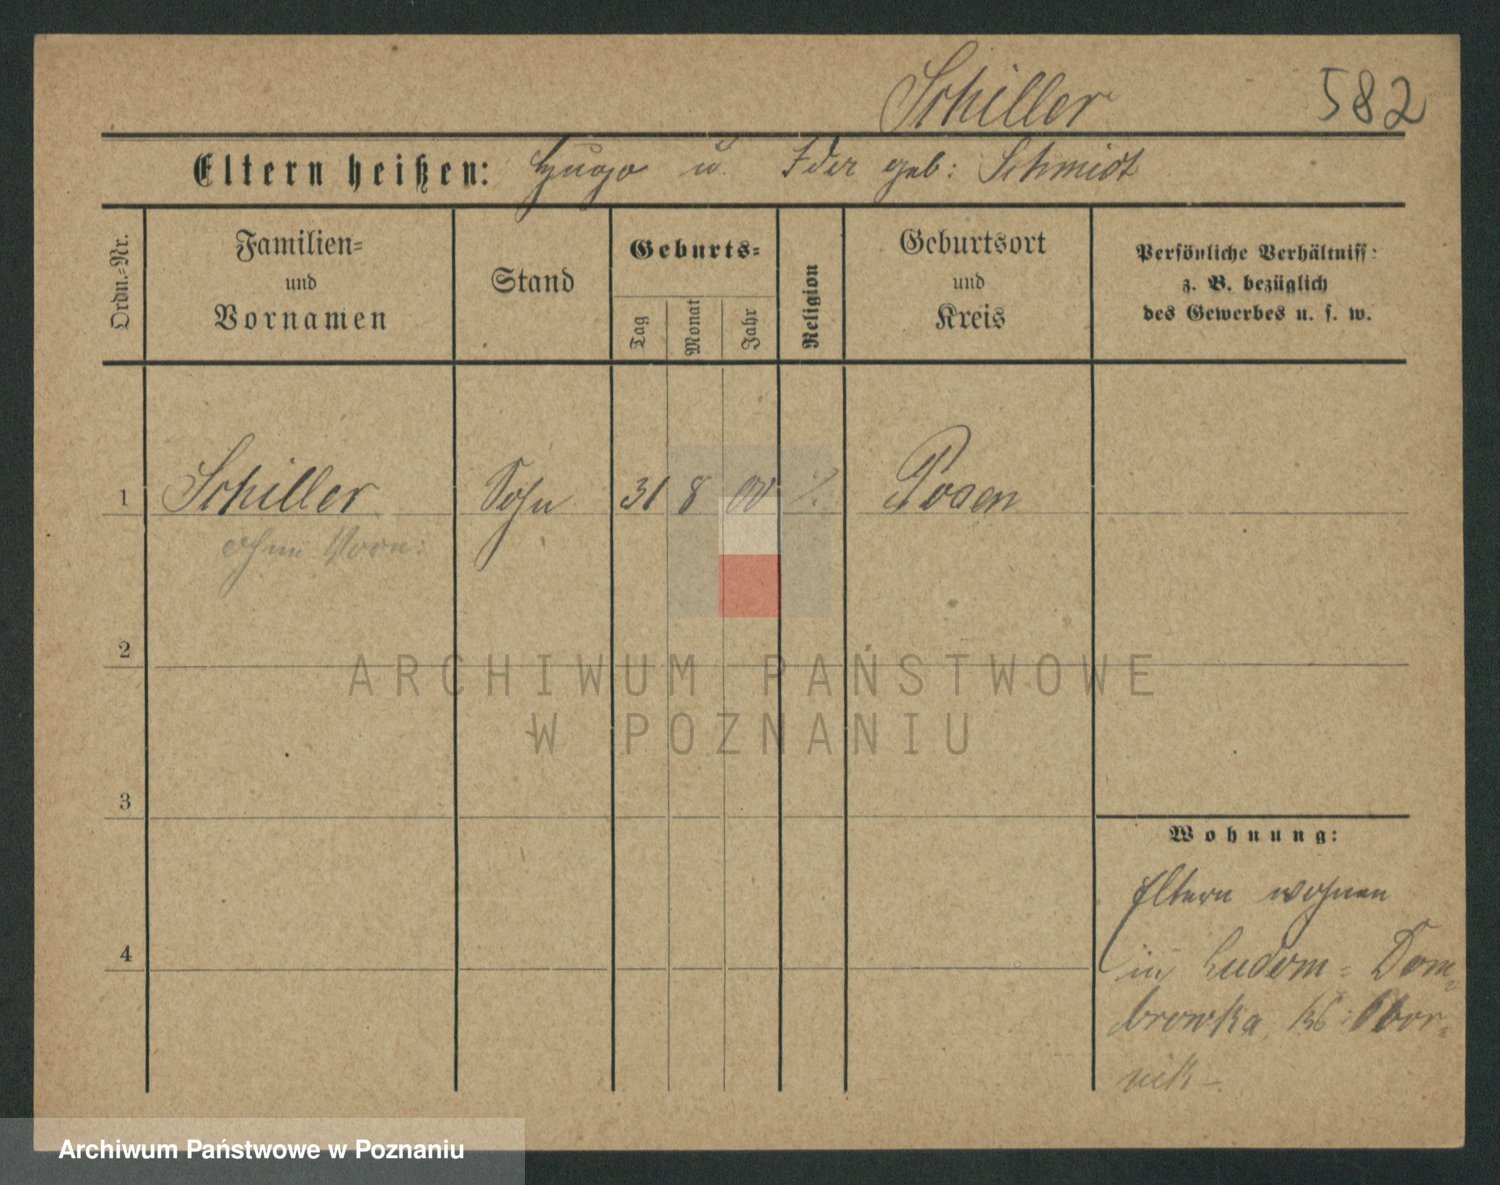 Schiller 582
Eltern heißen: Hugo u. Ida geb: Schmidt
Ordn.-Nr.
Familien-
und
Vornamen
Stand
Geburts-
Tag
Monat
Jahr
Religion
Geburtsort
und
Kreis
Persönliche Verhältniss:
z. B. bezüglich
des Gewerbes u. s. w.
1 Schiller Sohn 31 8 00 Posen
ohne Vorn:
2
ARCHIWUM PAŃSTWOWE
W POZNANIU
3
Wohnung:
Eltern wohnen
4
in Ludom- Dom-
browka, Obor-
nik
Archiwum Państwowe w Poznaniu